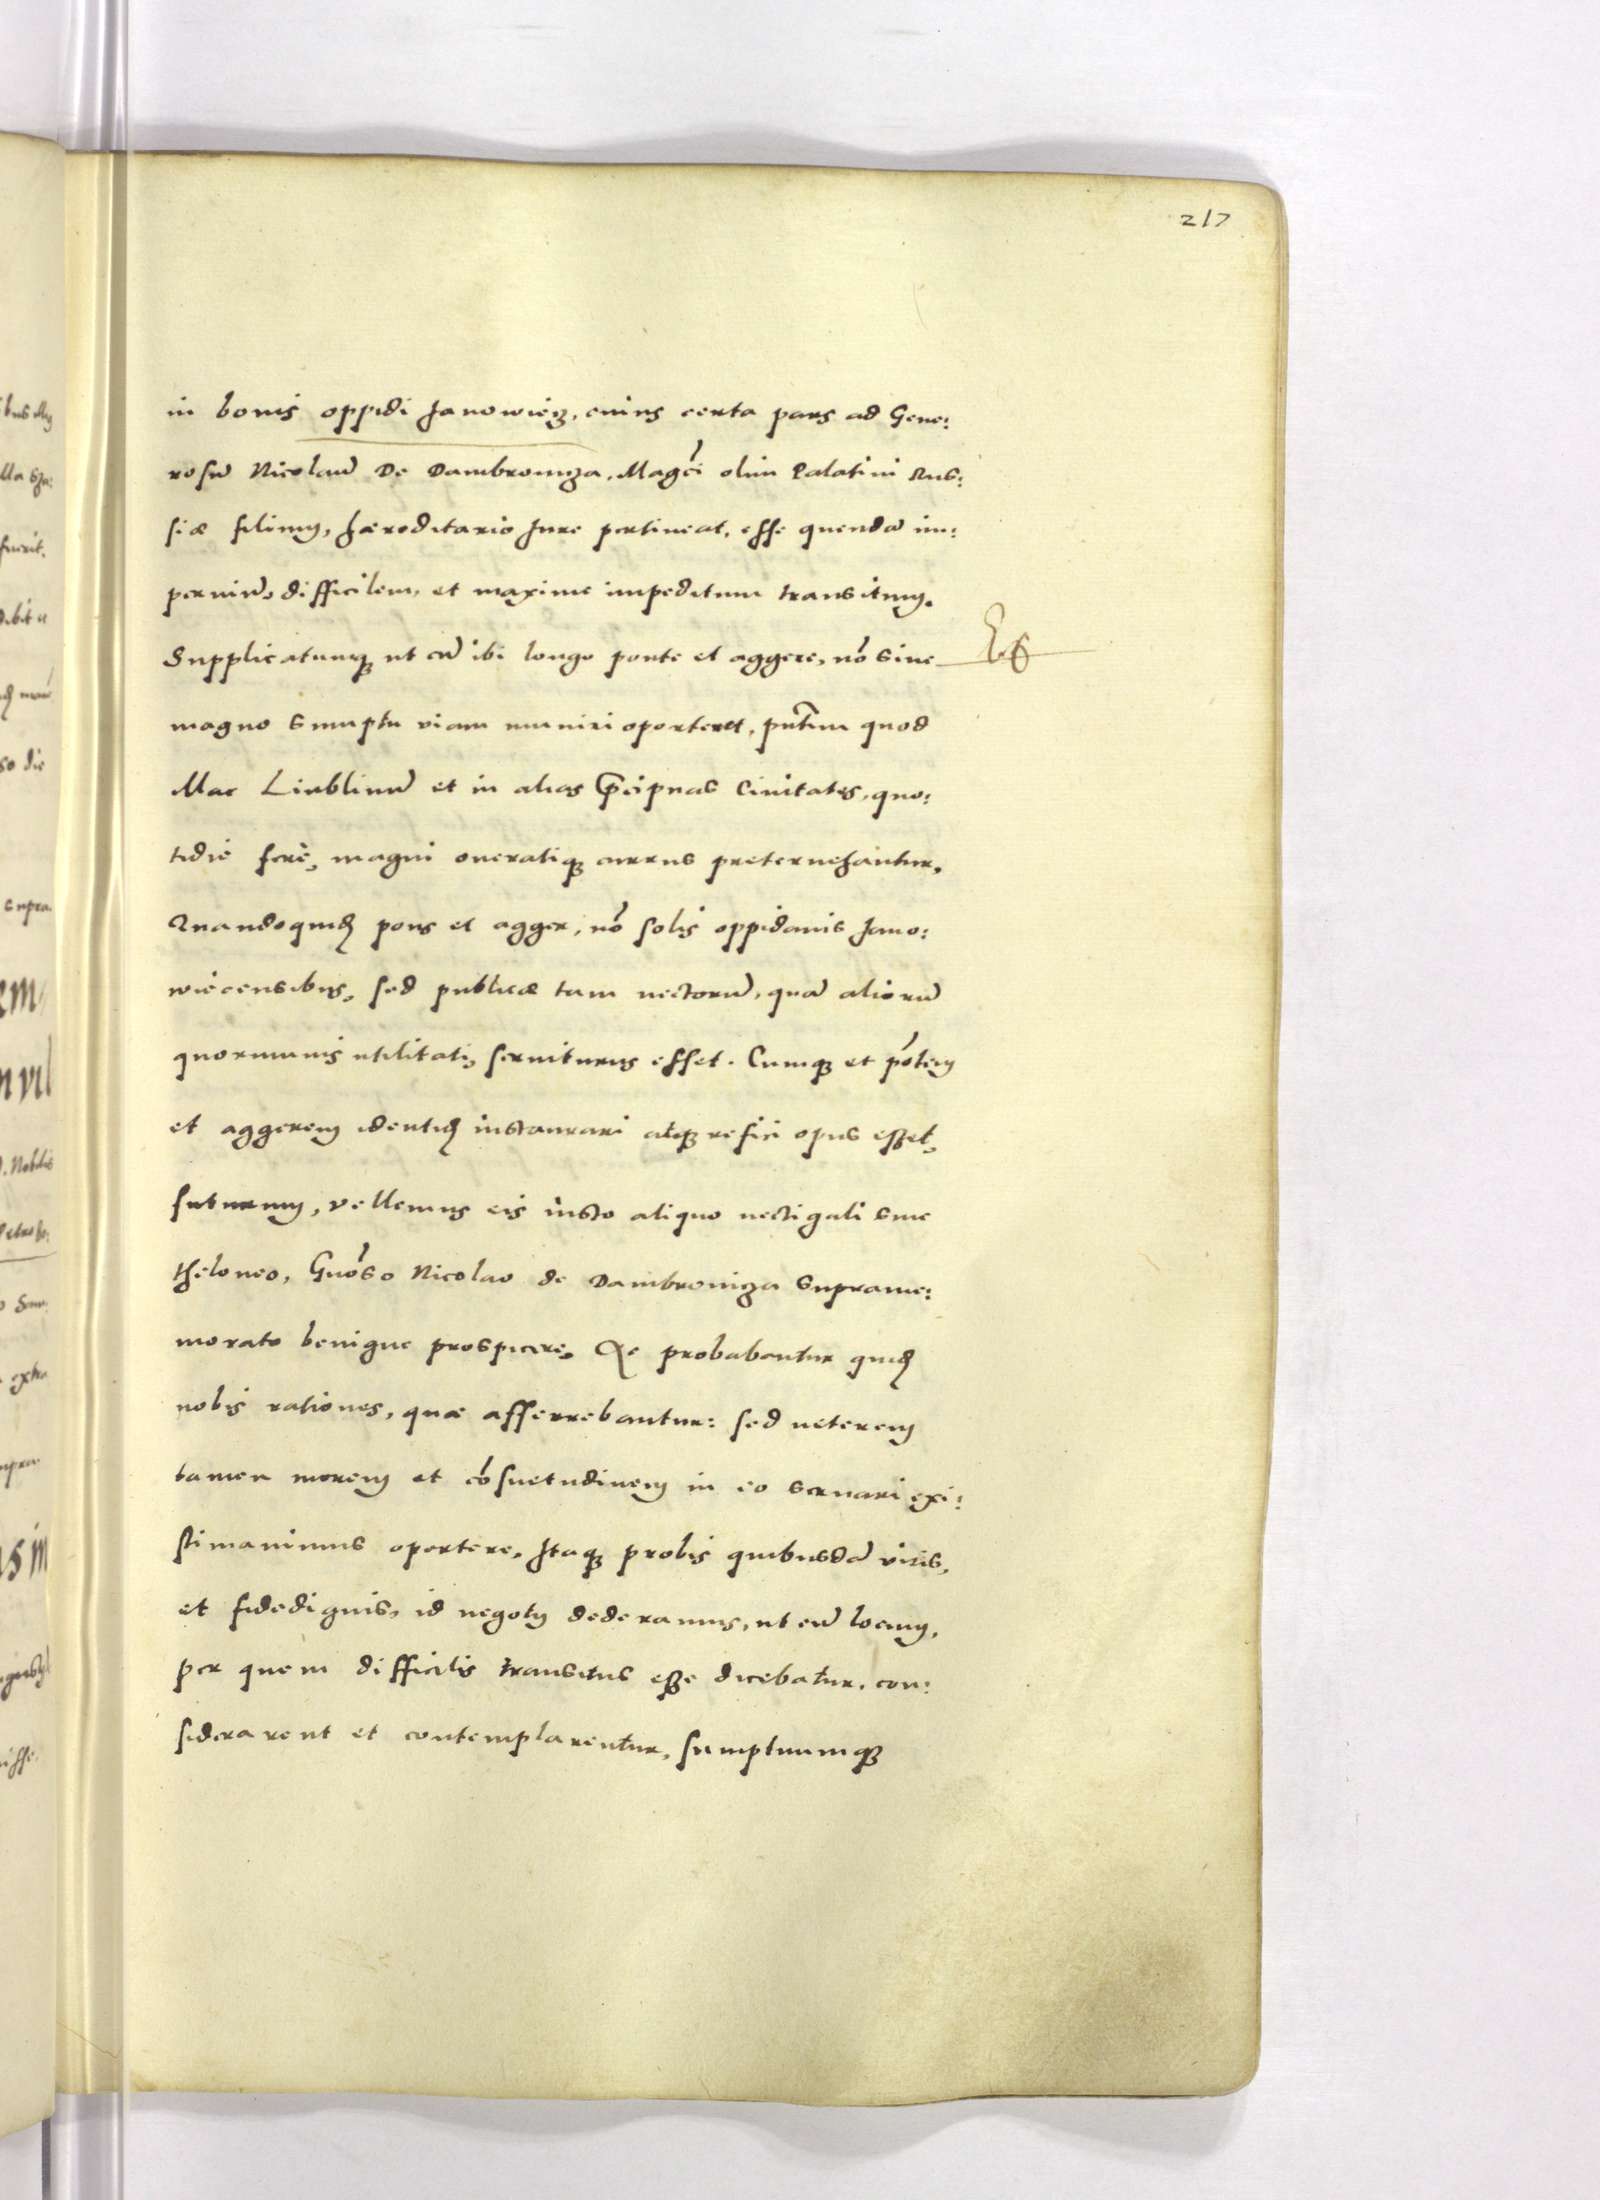 217
in bonis oppidi Janowiecz, cuius certa pars ad Gene:
rosũ Nicolaũ De Dambrowicza, Magci olim Palatini Rus:
siæ filium, hæreditario Jure pertineat, esse quendã im:
peruiũ, difficilem, et maxime impeditum transitum.
Supplicatumq ut cũ ibi longo ponte et aggere, nõ sine
magno sumptu viam muniri oporteret, pñtim quod
illac Liublinũ et in alias p̃cipuas Ciuitates, quo:
tidie ferè, magni oneratiq currus preteruehantur,
Quandoquidẽ pons et agger, nõ solis oppidanis Jano:
wiecensibus, sed publicæ tam uectorũ, quã aliorũ
quorumuis utilitati, seruiturus esset. Cumq et põtem
et aggerem identidẽ instaurari atq refici opus esset,
futurum, vellemus eis iusto aliquo uectigali siue
theloneo, Gnõso Nicolao de Dambrowicza suprame:
morato benigne prospicere. Ac probabantur quidẽ
nobis rationes, quæ afferrebantur: sed ueterem
tamen morem et cõsuetudinem in eo seruari exi:
stimauimus oportere, Itaq probis quibusdã viris,
et fidedignis, id negotij dederamus, ut eũ locum,
per quem difficilis transitus esse dicebatur, con:
siderarent et contemplarentur, sumptuumq